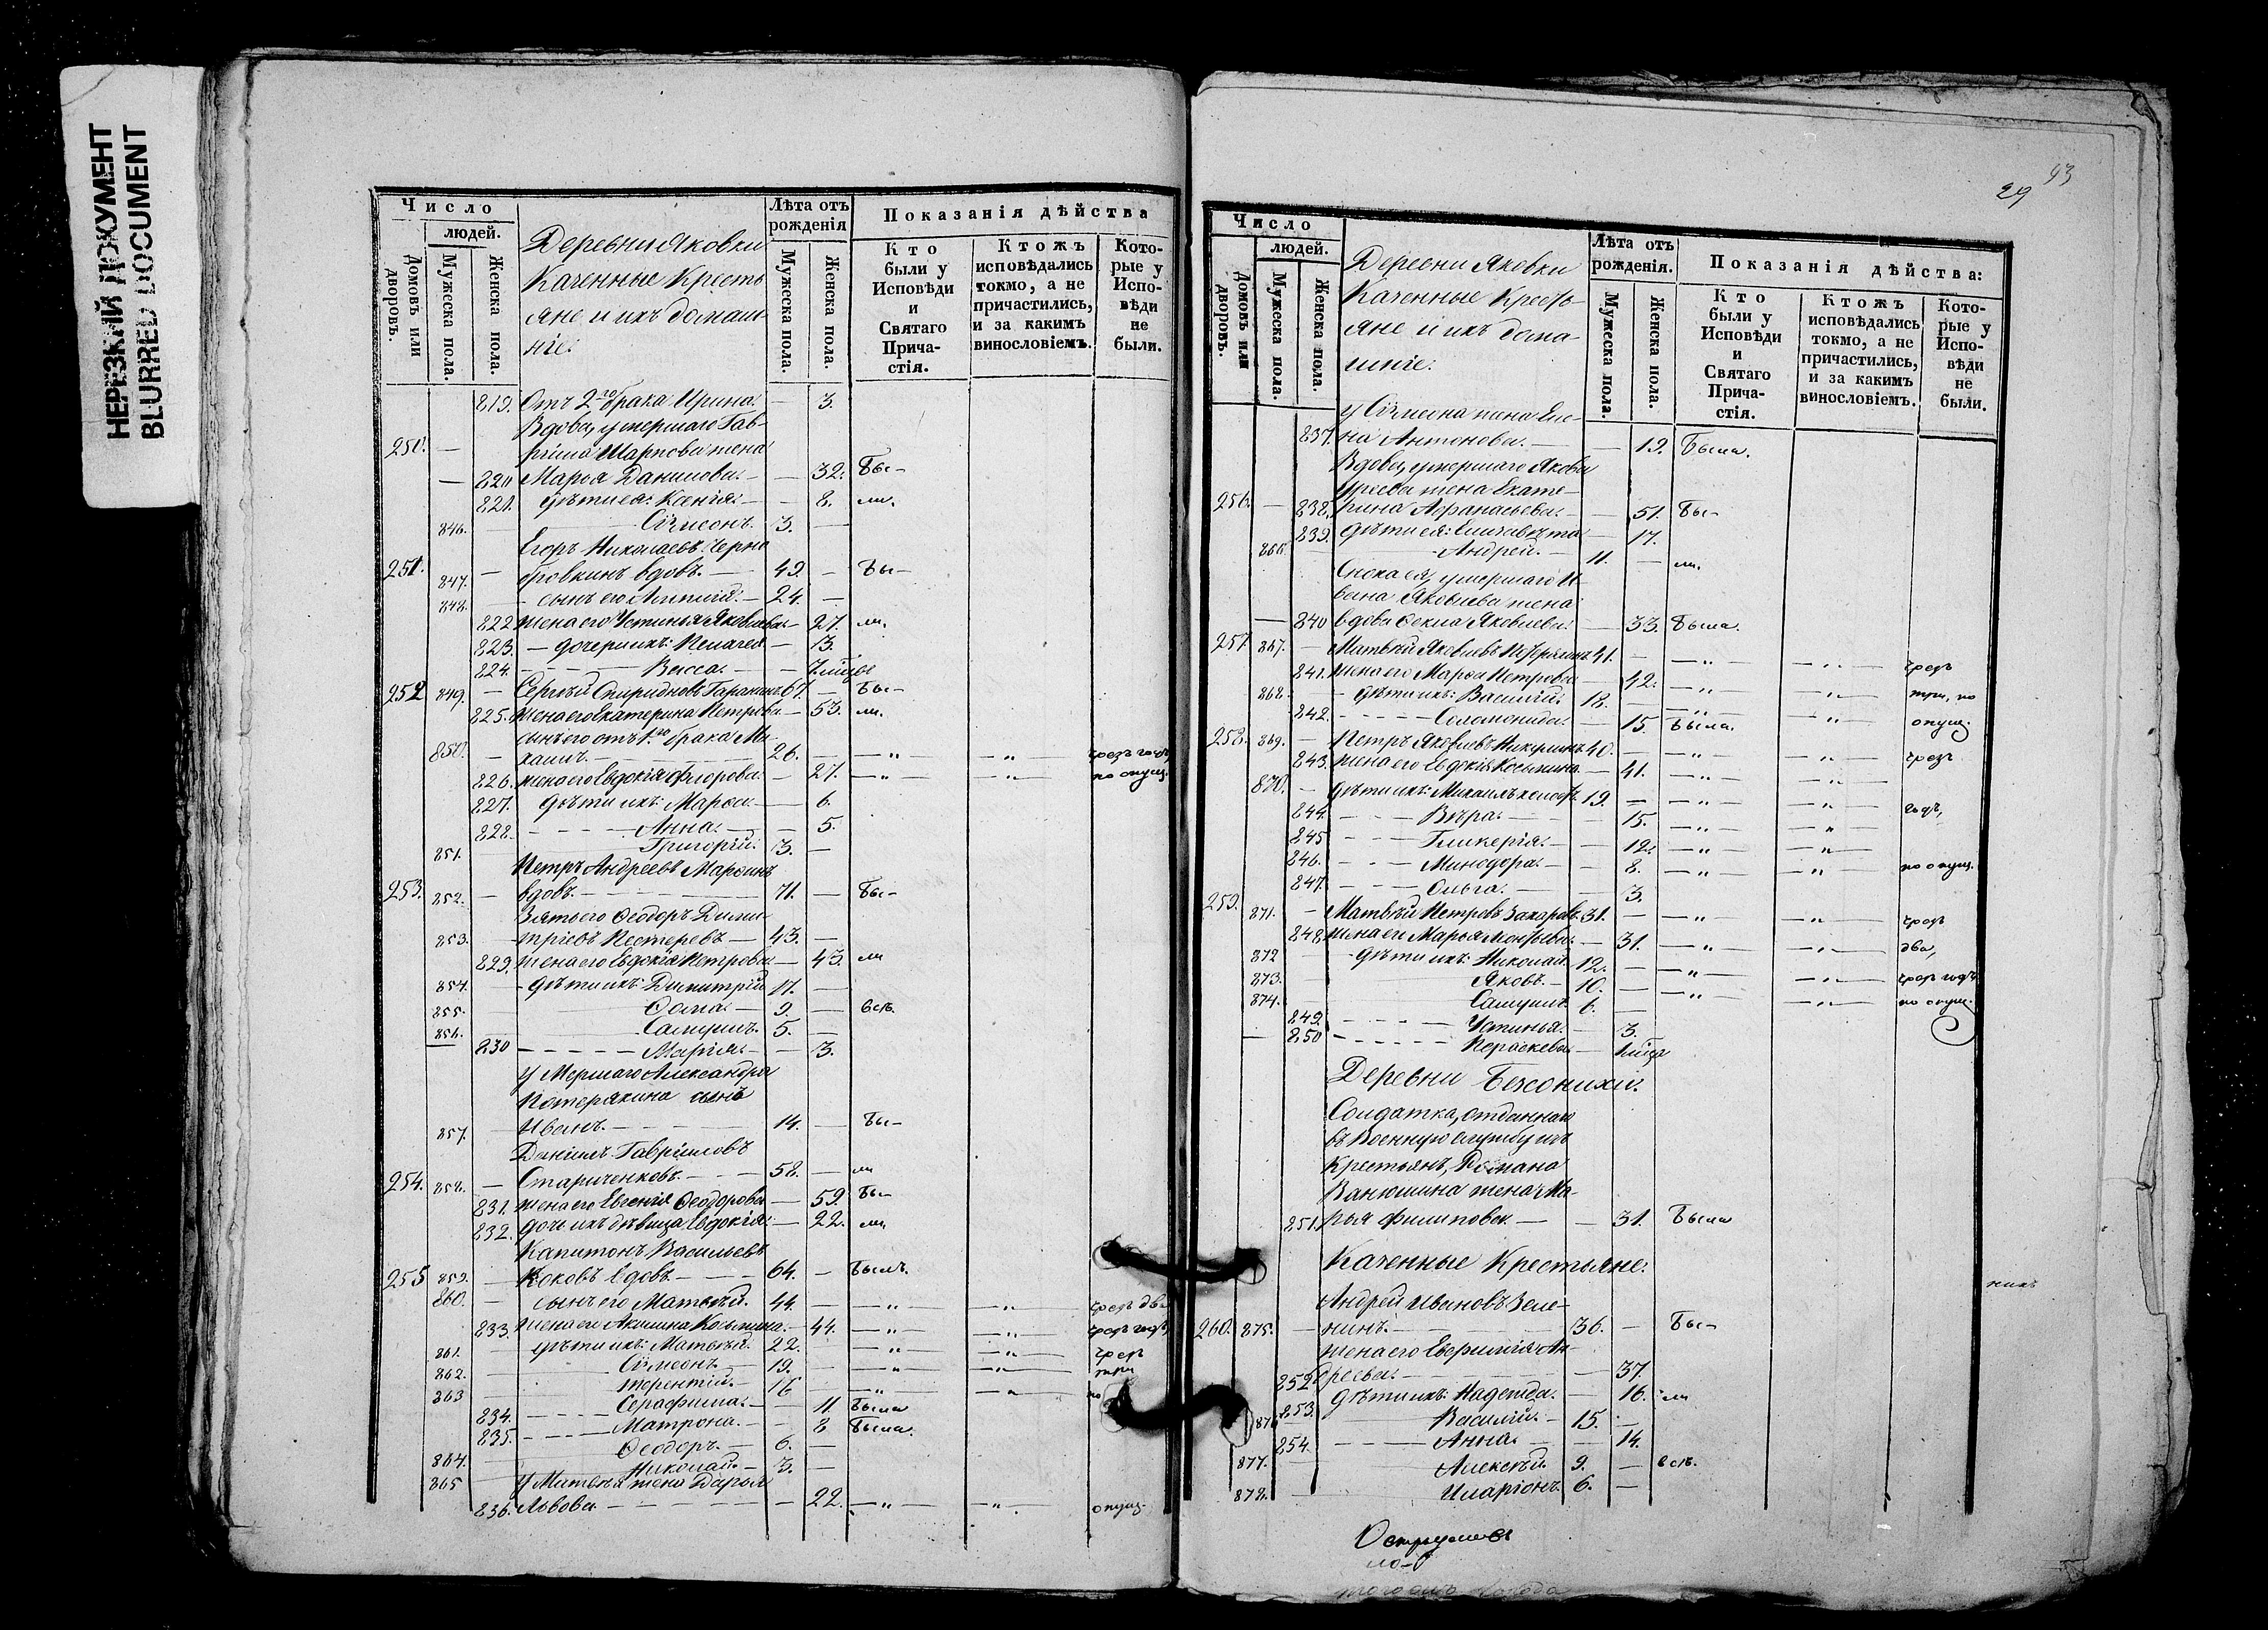 НЕРЕЗКИЙ ДОКУМЕНТ
BLURRED DOCUMENT
Число
людей.
Домовъ или дворовъ.
Мужеска пола.
Женска пола.
Деревни Яковки
Казенные Кресть
яне и ихъ домаш-
ніе:
Лѣта отъ рожденія
Мужеска пола.
Женска пола.
Показанія дѣйства
Кто были у Исповѣди и Святаго Прича-стія.
Ктожъ исповѣдались токмо, а не причастились, и за какимъ винословіемъ.
Кото-рые у Испо-вѣди не были.
819. Отъ 2го брака Ирина. — 3.
Вдова, умершаго Гав-
250. — ріила Шарпова жена
— 820 Марья Данилова. — — 32. Бы-
821. дѣти ея: Ксенія. — — 8. ли.
846. — Сѵмеонъ. 3. —
Егоръ Николаевъ Черно
251. 847. — бровкинъ вдовъ. — 49. — Бы-
848. — сынъ его — 24. —
822 жена его Устинья Яковлева — 27. ли.
823. — дочери ихъ: Пелагея — 13.
824. — Васса. — —
252 849. — Сергѣй Спиридоновъ Гаранинъ 67. — Бы-
825. жена его Екатерина Петрова — 53. ли.
сынъ его отъ 1го брака Ми-
850. — хаилъ. — 26. — — „ — — „ — чрезъ годъ,
826. жена его Евдокія Флорова. — 27. — „ — „ по опущ.
827. дѣти ихъ: Марѳа — — 6.
828. — Анна. — — 5.
851. — Григорій. 3. —
Петръ Андреевъ
253. 852. — вдовъ. — 71. — Бы-
Зять его Ѳеодоръ Дими-
853. — тріевъ Пестеревъ — 43. —
829. жена его Евдокія Петрова — 43. ли
854. — дѣти ихъ: Димитрій 11. —
855. — Ѳома. — 9. — всѣ.
856. — Самуилъ. 5. —
830 — Марія. — — 3.
Умершаго Александра
Потеряхина сынъ
857. — Иванъ. — 14. — Бы-
Даніилъ Гавріиловъ
254. 858. — Стариченковъ. — 58. — ли
831. жена его Евгенія Ѳеодорова — 59. Бы-
832. дочь ихъ дѣвица Евдокія. — 22. ли
Капитонъ Васильевъ
255 859. — Коковъ вдовъ. — 64. — Былъ.
860. — сынъ его Матвѣй. 44. — — „ — — „ — чрезъ два
833. жена его Акилина Косьмина. — 44. — „ — — „ — чрезъ годъ
861. — дѣти ихъ: Матвѣй. 22. — — „ — — „ — чрез
862. — Сѵмеонъ. — 19. — — „ — — „ — три
863 — Терентій. — 16 — — „ — — „ — по
834. — Серафима. — — 11. Была
835. — Матрона. — — 8 Была.
864. — Ѳеодоръ. — 6. —
865 — Николай. — 3. —
У Матвѣя жена Дарья
836. Львова. — — 22. — „ — „ опущ.
29
93
Число
людей.
Домовъ или дворовъ.
Мужеска пола.
Женска пола.
Деревни Яковки
Казенные Кресть-
яне и ихъ дома-
шніе:
Лѣта отъ рожденія.
Мужеска пола.
Женска пола.
Показанія дѣйства:
Кто были у Исповѣди и Святаго Прича-стія.
Ктожъ исповѣдались токмо, а не причастились, и за какимъ винословіемъ.
Кото-рые у Испо-вѣди не были.
У Сѵмеона жена Еле-
837. на Антонова. — — 19. Была.
Вдова, умершаго Якова
жена Екате-
256. — 838. рина Аѳанасьева. — — 51. Бы-
839. дѣти ея: Елисавета — 17.
866. — Андрей. — 11. — ли.
Сноха ея, умершаго И-
вана Яковлева жена
— 840 вдова Ѳекла Яковлева. — 33. Была.
257 867. — Матвѣй Яковлевъ 41. — — „ — — „ — чрезъ
841. жена его Марѳа Петрова — 42. — „ — — „ — три, по
868. — дѣти ихъ: Василій. 18. — — „ — — „ — опущ.
842. — Соломонида. — 15. Была.
258. 869. — Петръ Яковлевъ Никулинъ 40. — — „ — — „ — чрезъ
843. жена его Евдокія Косьмина — 41. — „ — — „ —
870. — дѣти ихъ: Михаилъ холостъ 19. — — „ — — „ — годъ,
844. — Вѣра. — — 15. — „ — — „ —
845 — Гликерія. — — 12. — „ — — „ —
846. — Минодора. — — 8. — „ — — „ — по опущ.
847. — Ольга. — — 3.
259. 871. — Матвѣй Петровъ Захаровъ 31. — — „ — — „ — чрезъ
848. жена его Марья — 31. — „ — — „ — два,
872 — дѣти ихъ: Николай. 12. — — „ — — „ — чрез годъ
873. — Яковъ. — 10. — — „ — — „ — по опущ.
874. — Самуилъ. 6. —
849. — Устинья. — 3.
— 850 — Параскева. —
Деревни
Солдатка, отданнаго
въ Военную службу изъ
Крестьянъ, Романа
Ванюшина жена Ма-
851. рья Филипова. — — 31. Была
Казенные Крестьяне:
Андрей Ивановъ Зеле-
260. 875. — нинъ. — 36. — Бы-
жена его Евфимія Ан-
852 дреева. — — 37.
853. дѣти ихъ: Надежда. — 16. ли
876 — Василій. — 15. —
854. — Анна. — — 14.
877. — Алексѣй. 9. — всѣ.
878. — Иларіонъ. 6. —